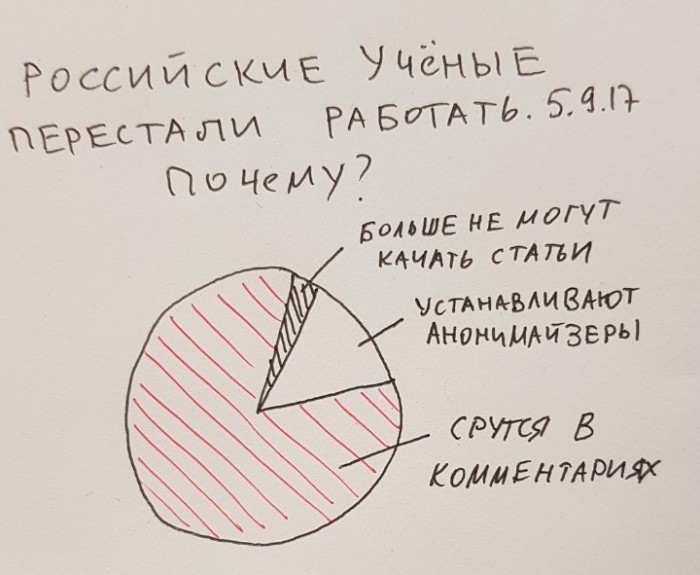 РОССИЙСКИЕ УЧЁНЫЕ
ПЕРЕСТАЛИ РАБОТАТЬ. 5.9.17
ПОЧЕМУ?
БОЛЬШЕ НЕ МОГУТ
КАЧАТЬ СТАТЬИ
УСТАНАВЛИВАЮТ
АНОНИМАЙЗЕРЫ
СРУТСЯ В
КОММЕНТАРИЯХ